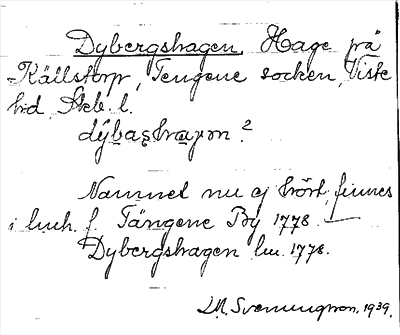 Dybergshagen, Hage på
Källstorp, Tengene socken, Viste
hd, Skb. l.
dýbaṣhaɡɔn ?
Namnet nu ej hört, finnes
i luch. f. Tängene By 1778. —
Dybergshagen lu. 1778.
Svenungson, 1939.